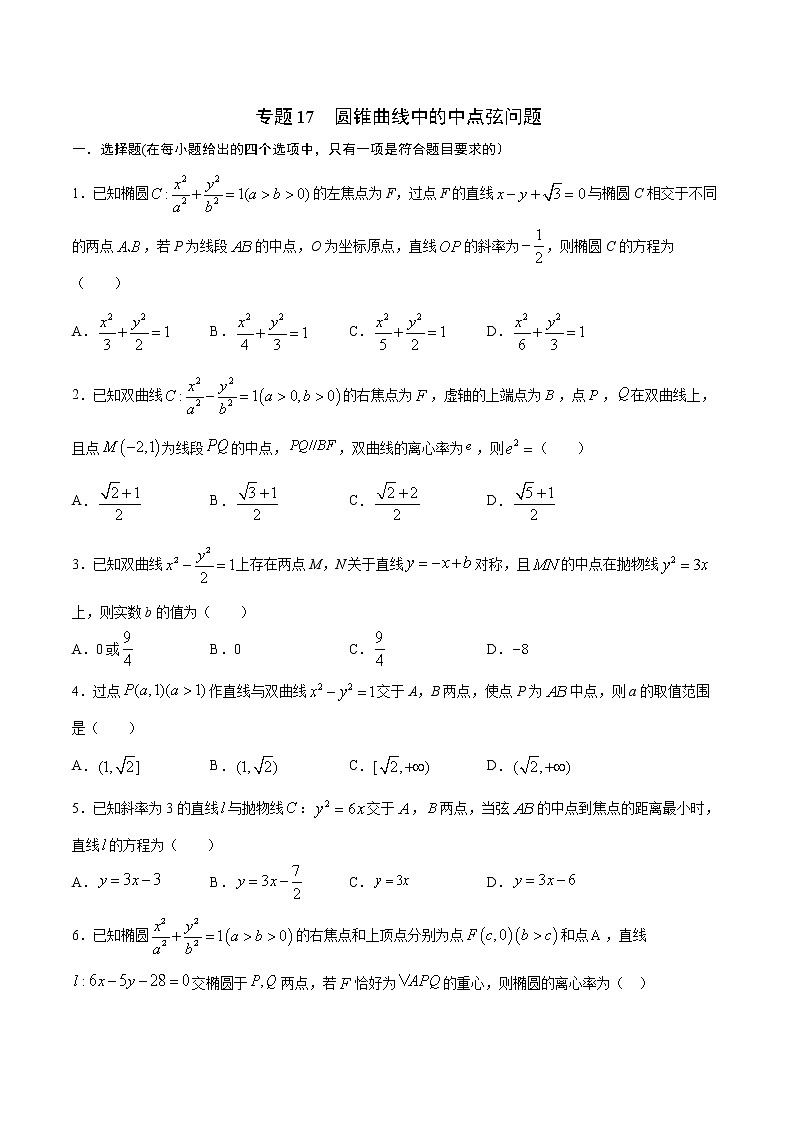 专题17 圆锥曲线中的中点弦问题
一．选择题(在每小题给出的四个选项中，只有一项是符合题目要求的)
1.已知椭圆 $C:\frac{x^2}{a^2}+\frac{y^2}{b^2}=1(a>b>0)$ 的左焦点为F，过点F的直线 $x-y+\sqrt{3}=0$ 与椭圆C相交于不同
的两点 $A、B$，若P为线段 $AB$ 的中点，O为坐标原点，直线 $OP$ 的斜率为 $-\frac{1}{2}$，则椭圆C的方程为
（ ）
A. $\frac{x^2}{3}+\frac{y^2}{2}=1$ B. $\frac{x^2}{4}+\frac{y^2}{3}=1$ C. $\frac{x^2}{5}+\frac{y^2}{2}=1$ D. $\frac{x^2}{6}+\frac{y^2}{3}=1$
2.已知双曲线 $C:\frac{x^2}{a^2}-\frac{y^2}{b^2}=1(a>0,b>0)$ 的右焦点为 $F$，虚轴的上端点为 $B$，点 $P$，$Q$ 在双曲线上，
且点 $M(-2,1)$ 为线段 $PQ$ 的中点，$PQ//BF$，双曲线的离心率为 $e$，则 $e^2=$（ ）
A. $\frac{\sqrt{2}+1}{2}$ B. $\frac{\sqrt{3}+1}{2}$ C. $\frac{\sqrt{2}+2}{2}$ D. $\frac{\sqrt{5}+1}{2}$
3.已知双曲线 $x^2-\frac{y^2}{2}=1$ 上存在两点M，N关于直线 $y=-x+b$ 对称，且 $MN$ 的中点在抛物线 $y^2=3x$
上，则实数b的值为（ ）
A.0或 $\frac{9}{4}$ B.0 C. $\frac{9}{4}$ D. $-8$
4.过点 $P(a,1)(a>1)$ 作直线与双曲线 $x^2-y^2=1$ 交于A，B两点，使点P为 $AB$ 中点，则a的取值范围
是（ ）
A. $(1,\sqrt{2}]$ B. $(1,\sqrt{2})$ C. $[\sqrt{2},+\infty)$ D. $(\sqrt{2},+\infty)$
5.已知斜率为3的直线 $l$ 与抛物线 $C$：$y^2=6x$ 交于 $A$，$B$ 两点，当弦 $AB$ 的中点到焦点的距离最小时，
直线 $l$ 的方程为（ ）
A. $y=3x-3$ B. $y=3x-\frac{7}{2}$ C. $y=3x$ D. $y=3x-6$
6.已知椭圆 $\frac{x^2}{a^2}+\frac{y^2}{b^2}=1(a>b>0)$ 的右焦点和上顶点分别为点 $F(c,0)(b>c)$ 和点 A，直线
$l:6x-5y-28=0$ 交椭圆于 $P,Q$ 两点，若 $F$ 恰好为 $\vee APQ$ 的重心，则椭圆的离心率为（ ）